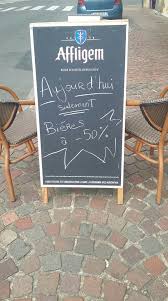 Affligem
Aujourd'hui
seulement
Bières
à -50%